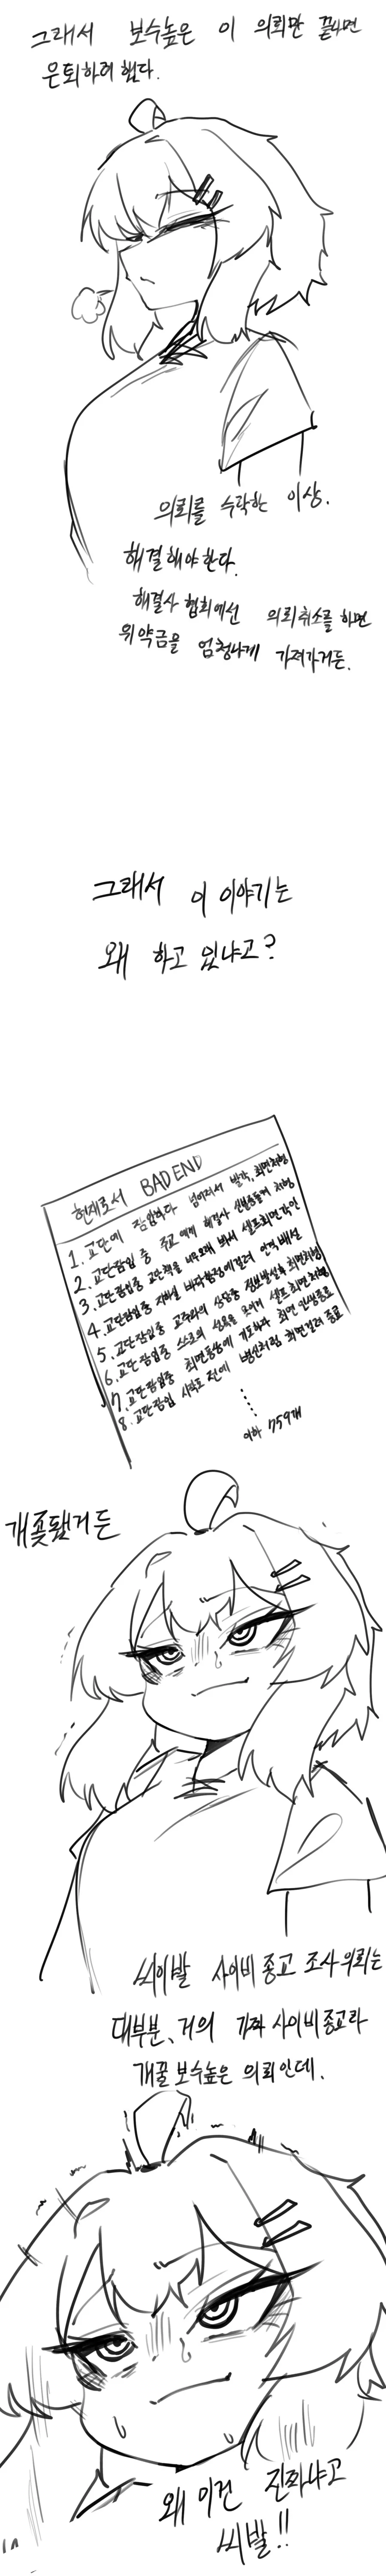 그래서 보수높은 이 의뢰만 끝나면
은퇴하려 했다.
의뢰를 수락한 이상.
해결해야한다.
해결사 협회에선 의뢰취소를 하면
위약금을 엄청나게 가져가거든.
그래서 이 이야기는
왜 하고 있냐고?
현재로서 BAD END
1. 교단에 잠입하다 넘어져서 발각, 최면처형
2. 교단잠입 중 주교에게 해결사 처형
3. 교단잠입중 교단책을 너무오래 봐서 셀프최면각인
4. 교단잠입중 지하실 바닥함정에걸려
5. 교단잠입중 교주와의 상담중 최면처형
6. 교단잠입중 스스로의 셀프 최면처형
7. 교단잠입중 최면 인생종료
8. 교단잠입 시작도 전에 병신처럼 최면걸려 종료
이하 759개
개좆됐거든
씨이발 사이비종교 조사의뢰는
대부분, 거의 가짜 사이비종교라
개꿀보수높은 의뢰인데.
왜 이건 진짜냐고
씨발!!